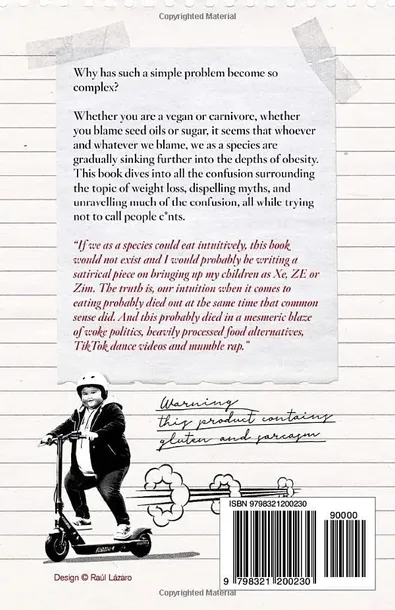 Copyrighted Material
Why has such a simple problem become so
complex?
Whether you are a vegan or carnivore, whether
you blame seed oils or sugar, it seems that whoever
and whatever we blame, we as a species are
gradually sinking further into the depths of obesity.
This book dives into all the confusion surrounding
the topic of weight loss, dispelling myths, and
unravelling much of the confusion, all while trying
not to call people c*nts.
“If we as a species could eat intuitively, this book
would not exist and I would probably be writing a
satirical piece on bringing up my children as Xe, ZE or
Zim. The truth is, our intuition when it comes to
eating probably died out at the same time that common
sense did. And this probably died in a mesmeric blaze
of woke politics, heavily processed food alternatives,
TikTok dance videos and mumble rap.”
Warning
this product contains
gluten and sarcasm
ISBN 9798321200230
90000
9 798321 200230
Design © Raúl Lázaro
Copyrighted Material